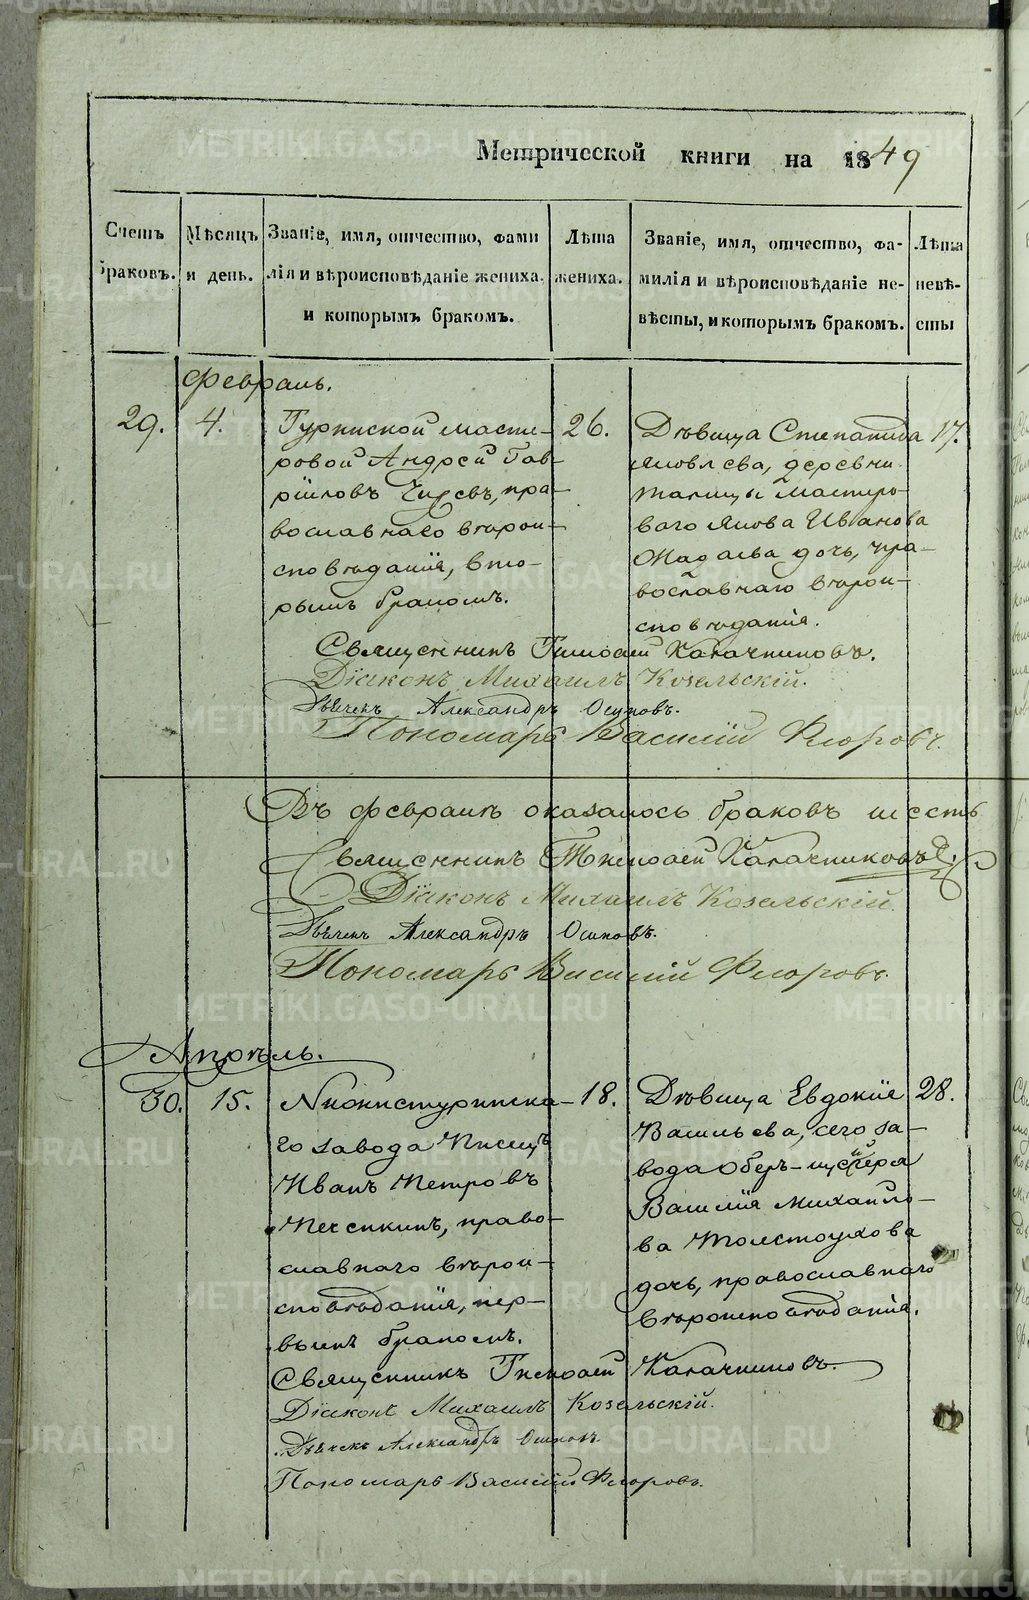 Метрической книги на 1849
Счетъ браковъ.
Мѣсяцъ и день.
Званіе, имя, отчество, фамилія и вѣроисповѣданіе жениха. и которымъ бракомъ.
Лѣта жениха.
Званіе, имя, отчество, фамилія и вѣроисповѣданіе невѣсты, и которымъ бракомъ.
Лѣта невѣсты
Февраль.
29.
4.
Туринской масте-
ровой Андрей Гав-
рііловъ пра-
вославнаго вѣрои-
сповѣданія, вто-
рымъ бракомъ.
26.
Дѣвица Степанида
Яковлева, деревни
Талицы Мастеро-
ваго Якова Иванова
дочь, пра-
вославнаго вѣрои-
сповѣданія.
17.
Священникъ Тимоѳей Калачниковъ.
Діаконъ Михаилъ Козельскій.
Дьячекъ Александръ Осиповъ.
Пономарь Василій Флоровъ.
Въ февралѣ оказалось браковъ шесть
Священникъ Тимоѳей Калачниковъ.
Діаконъ Михаилъ Козельскій.
Дьячекъ Александръ Осиповъ.
Пономарь Василій Флоровъ.
Апрѣль.
30.
15.
Нижнетуринска-
го завода Писецъ
Иванъ Петровъ
Печенкинъ, право-
славнаго вѣрои-
сповѣданія, пер-
вымъ бракомъ.
18.
Дѣвица Евдокія
Васильева, сего за-
вода
Василія Михайло-
ва Толстоухова
дочь, православнаго
вѣроисповѣданія.
28.
Священникъ Тимоѳей Калачниковъ.
Діаконъ Михаилъ Козельскій.
Дьячекъ Александръ Осиповъ
Пономарь Василій Флоровъ.
METRIKI.GASO-URAL.RU